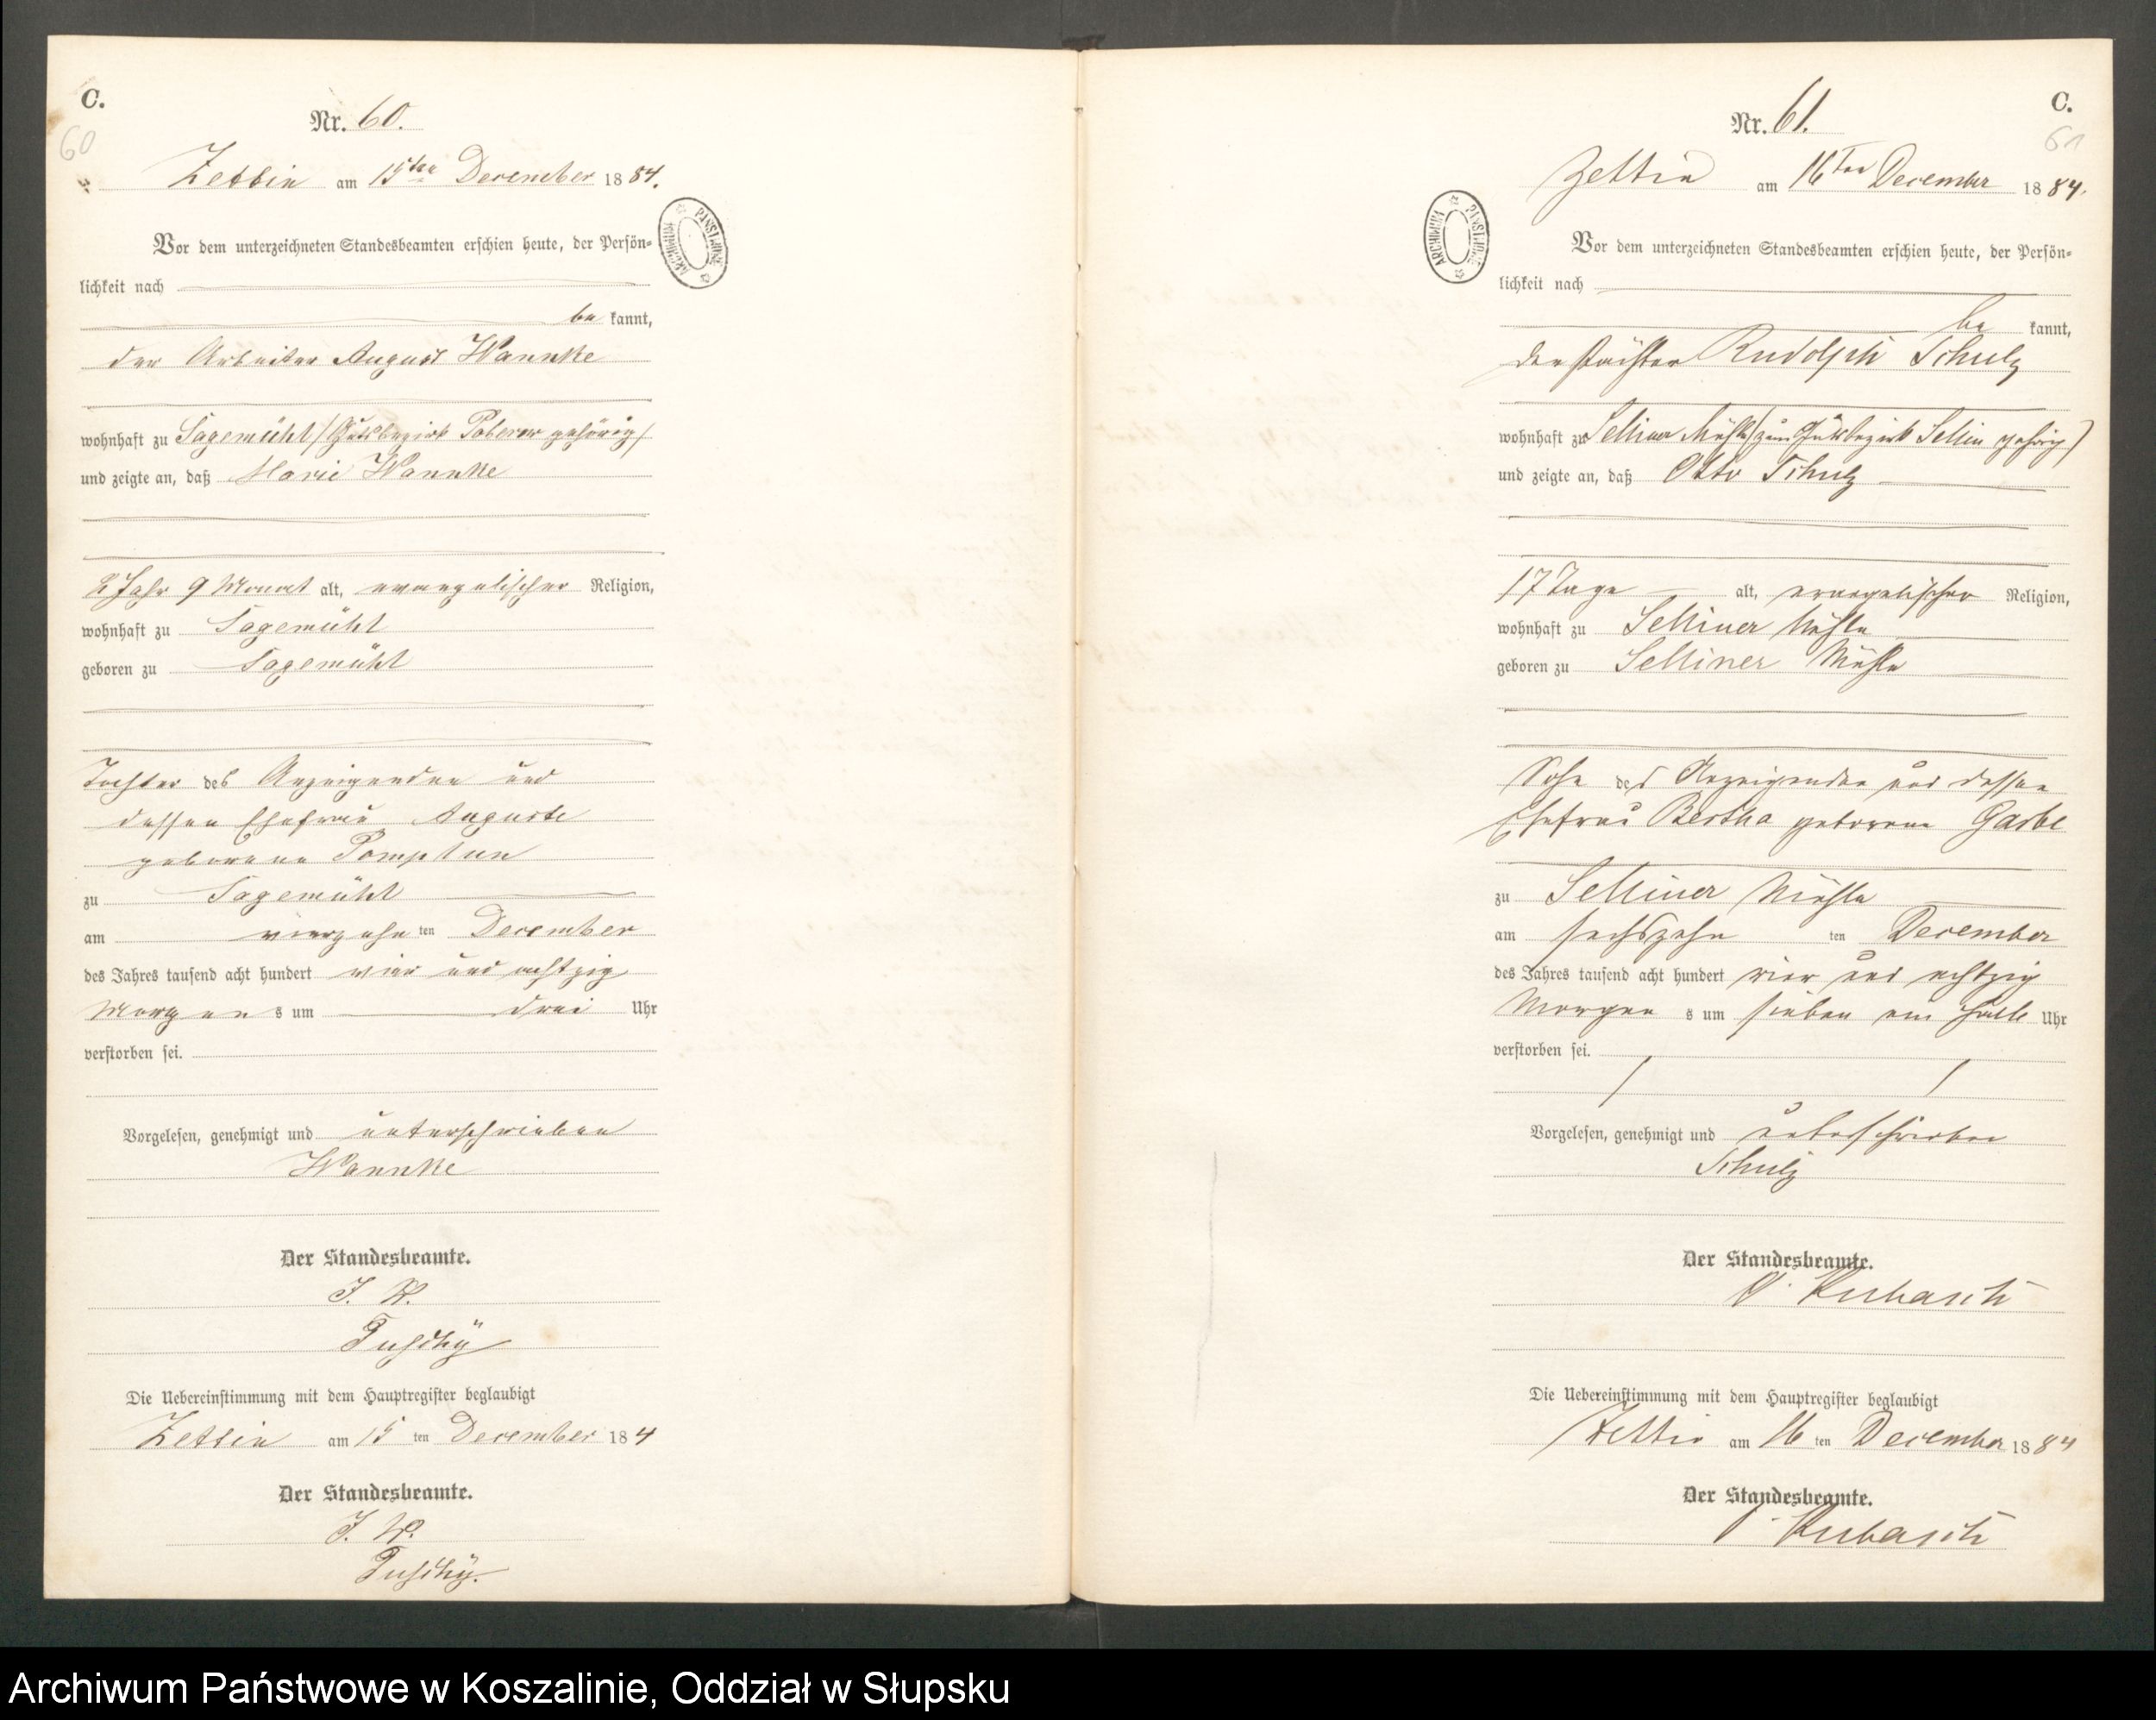 C.
60
Nr. 60.
Zettin am 15ten December 1884.
Vor dem unterzeichneten Standesbeamten erschien heute, der Persön-
lichkeit nach
be kannt,
der Arbeiter August Wannke
wohnhaft zu Sagemühl /Gutsbezirk Poberow gehörig/
und zeigte an, daß Marie Wannke
2 Jahr 9 Monat alt, evangelischer Religion,
wohnhaft zu Sagemühl
geboren zu Sagemühl
Tochter des Anzeigenden und
dessen Ehefrau Auguste
geborene
zu Sagemühl
am vierzehn ten December
des Jahres tausend acht hundert vier und achtzig
Morgen s um drei Uhr
verstorben sei.
Vorgelesen, genehmigt und unterschrieben
Wannke
Der Standesbeamte.
J. V.
Die Uebereinstimmung mit dem Hauptregister beglaubigt
Zettin am 15 ten December 184
Der Standesbeamte.
J. V.
C.
61
Nr. 61.
Zettin am 16ten December 1884.
Vor dem unterzeichneten Standesbeamten erschien heute, der Persön-
lichkeit nach
be kannt,
der Rudolph Schulz
wohnhaft zu Selliner Mühle (zum Gutsbezirk Sellin gehörig)
und zeigte an, daß Otto Schulz
17 Tage alt, evangelischer Religion,
wohnhaft zu Selliner Mühle
geboren zu Selliner Mühle
Sohn des Anzeigenden und dessen
Ehefrau Bertha geborene Garbe
zu Selliner Mühle
am sechszehn ten December
des Jahres tausend acht hundert vier und achtzig
Morgen s um sieben ein halb Uhr
verstorben sei.
Vorgelesen, genehmigt und unterschrieben
Schulz
Der Standesbeamte.
Kubasch
Die Uebereinstimmung mit dem Hauptregister beglaubigt
Zettin am 16 ten December 1884
Der Standesbeamte.
Kubasch
ARCHIWUM PAŃSTWOWE
ARCHIWUM PAŃSTWOWE
Archiwum Państwowe w Koszalinie, Oddział w Słupsku